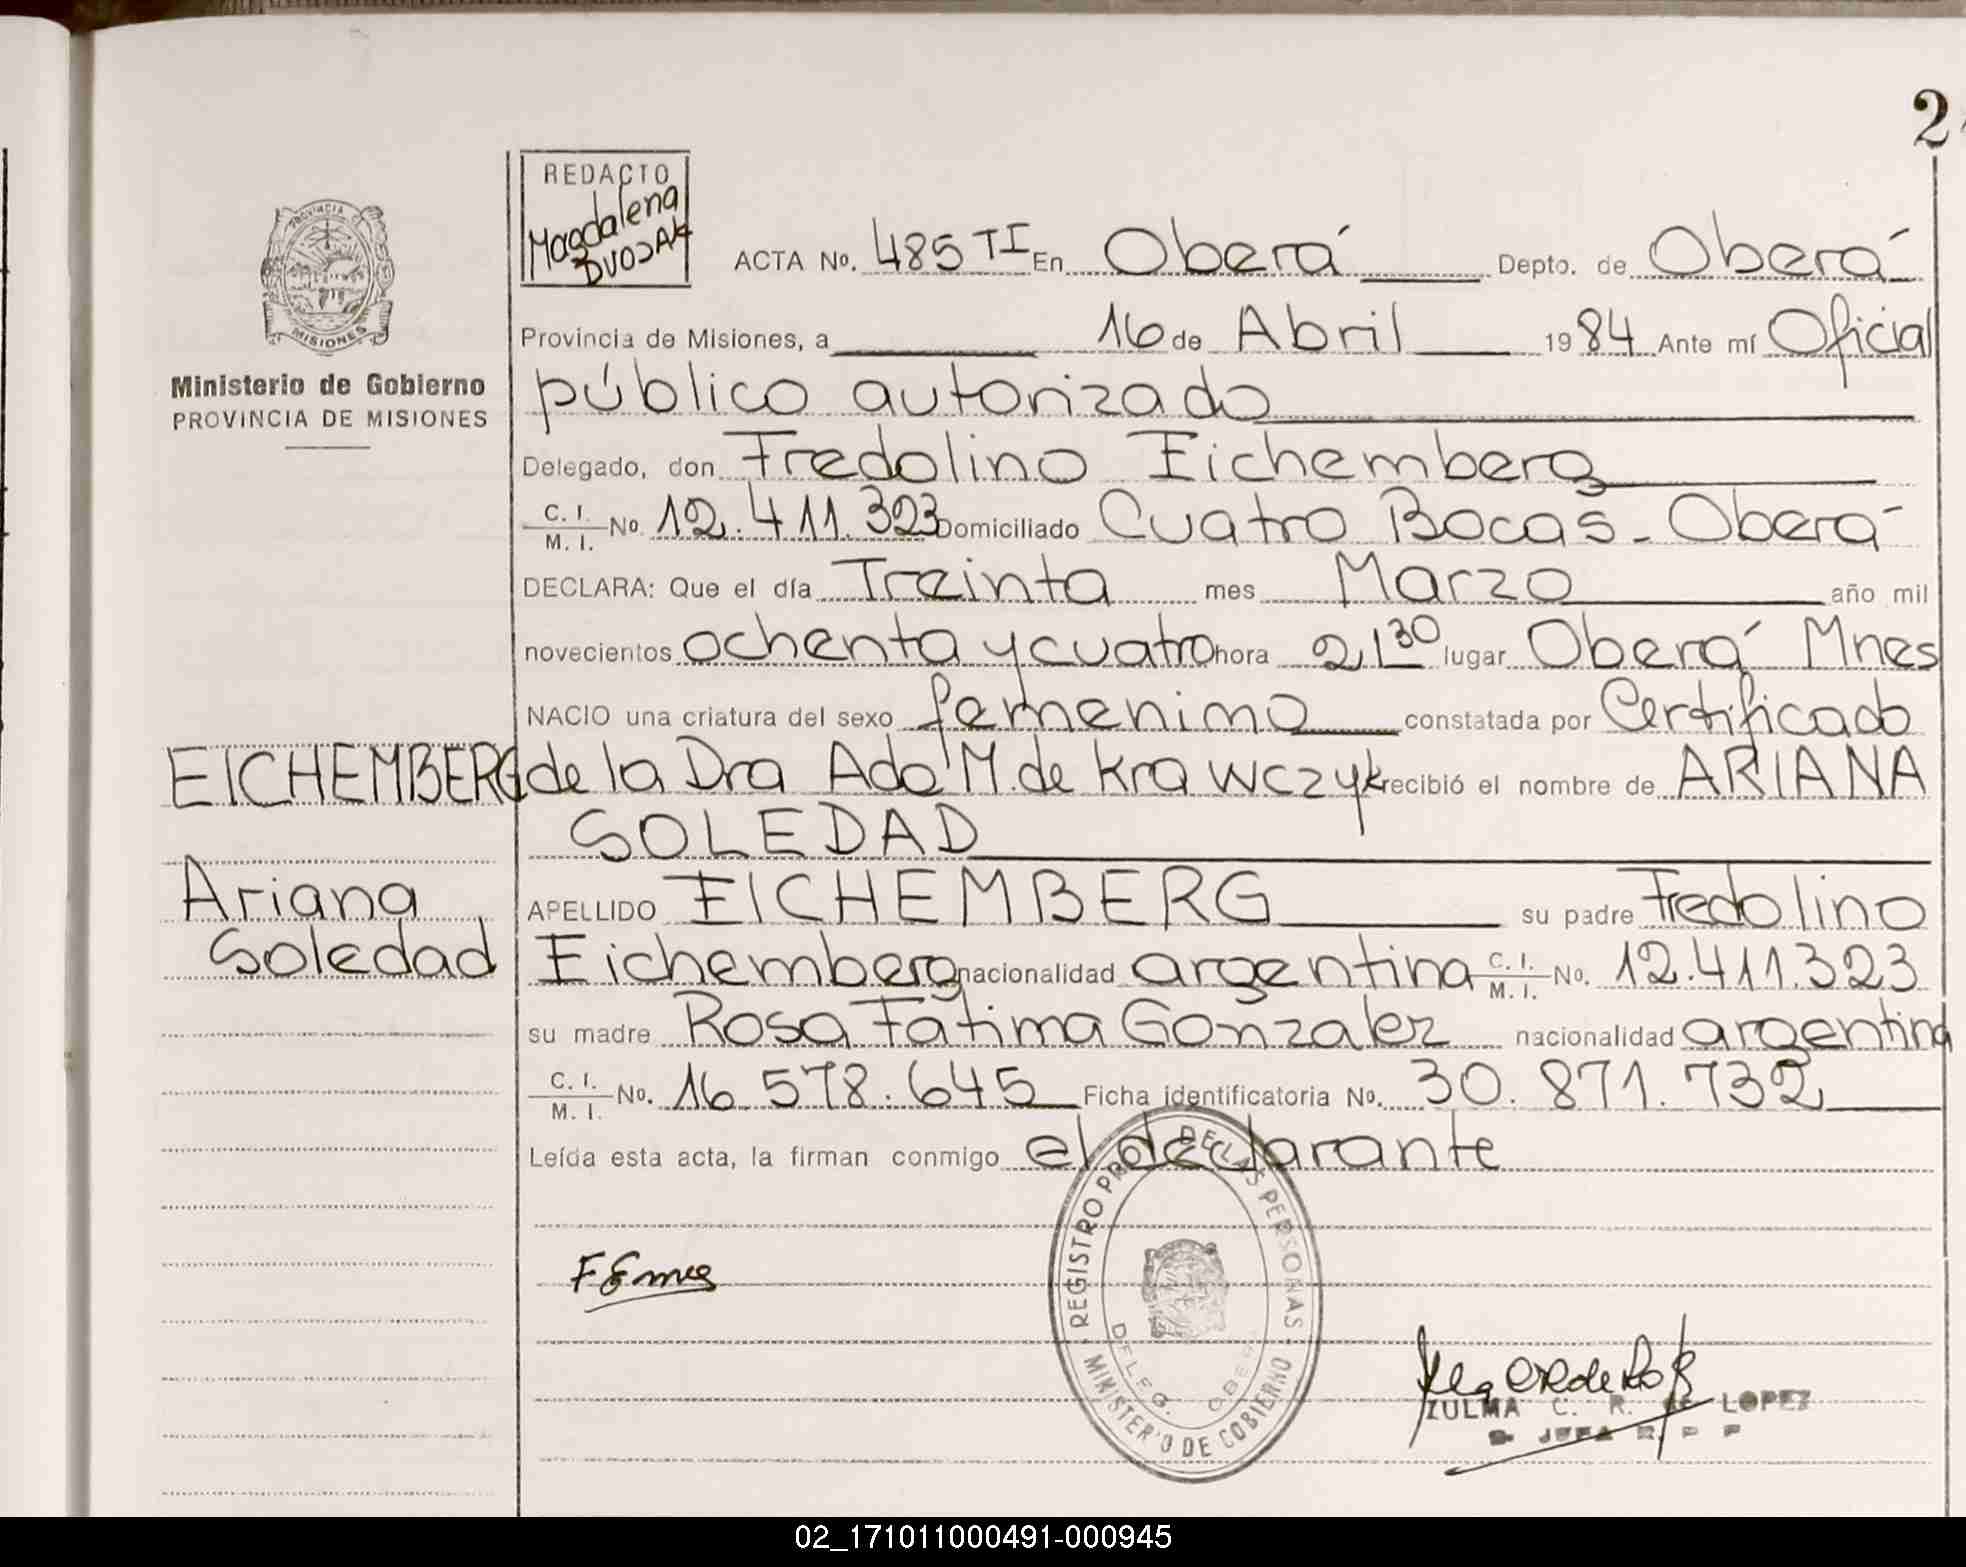 2
REDACTO
Magdalena
DVOJAK
PROVINCIA
MISIONES
Ministerio de Gobierno
PROVINCIA DE MISIONES
ACTA No. 485 TI En Oberá Depto. de Oberá
Provincia de Misiones, a 16 de Abril 1984 Ante mí Oficial
público autorizado
Delegado, don Fredolino Eichemberg
C. I. / M. I. No. 12.411.323 Domiciliado Cuatro Bocas - Oberá
DECLARA: Que el día Treinta mes Marzo año mil
novecientos ochenta y cuatro hora 21 30 lugar Oberá Mnes
NACIO una criatura del sexo femenino constatada por Certificado
EICHEMBERG de la Dra Ada M. de Krawczyk recibió el nombre de ARIANA
SOLEDAD
Ariana APELLIDO EICHEMBERG su padre Fredolino
Soledad Eichemberg nacionalidad argentina C. I. / M. I. No. 12.411.323
su madre Rosa Fátima Gonzalez nacionalidad argentina
C. I. / M. I. No. 16.578.645 Ficha identificatoria No. 30.871.732
Leída esta acta, la firman conmigo el declarante
REGISTRO DE LAS PERSONAS
DELEG. OBERA
MINISTERIO DE GOBIERNO
ZULMA C. R. de LOPEZ
JEFA R. P. P
02_171011000491-000945